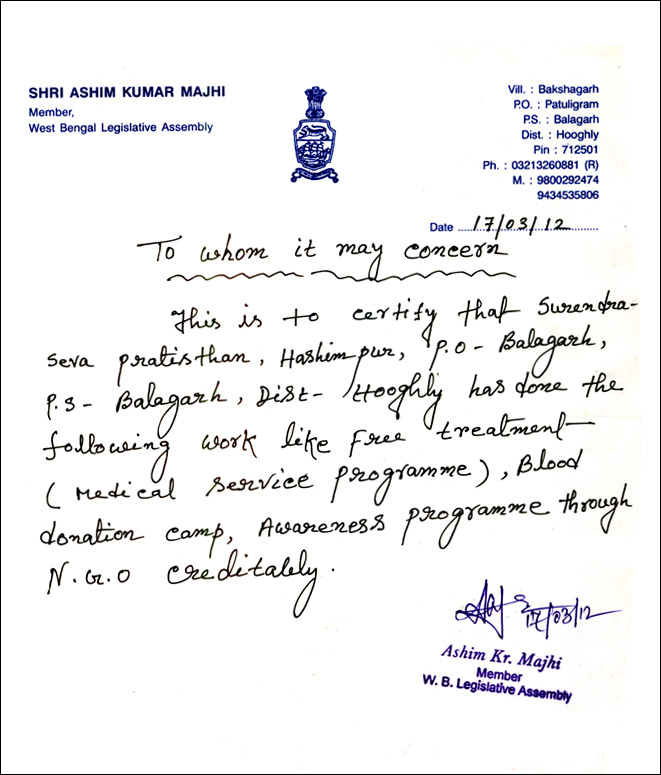 SHRI ASHIM KUMAR MAJHI
Member,
West Bengal Legislative Assembly
Vill. : Bakshagarh
P.O. : Patuligram
P.S. : Balagarh
Dist. : Hooghly
Pin : 712501
Ph. : 03213260881 (R)
M. : 9800292474
9434535806
Date ....17/03/12........
To whom it may concern
This is to certify that Surendra-
Seva pratisthan, Hashimpur, P.O - Balagarh,
P.S - Balagarh, Dist - Hooghly has done the
following work like free treatment—
(Medical service programme), Blood
donation camp, Awareness programme through
N.G.O creditably.
17/03/12
Ashim Kr. Majhi
Member
W. B. Legislative Assembly